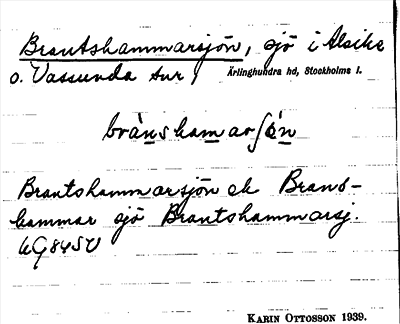 Brantshammarsjön, sjö i Alsike
o. Vassunda snr, Ärlinghundra hd, Stockholms l.
brànshamarʃön
Brantshammarsjön ek Brands-
hammar sjö Brantshammarsj.
KARIN OTTOSSON 1939.